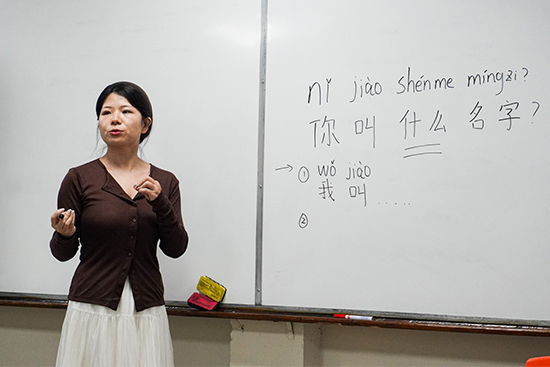 nǐ jiào shénme míngzi?
你 叫 什么 名字?
→ ① wǒ jiào
我 叫 .....
②